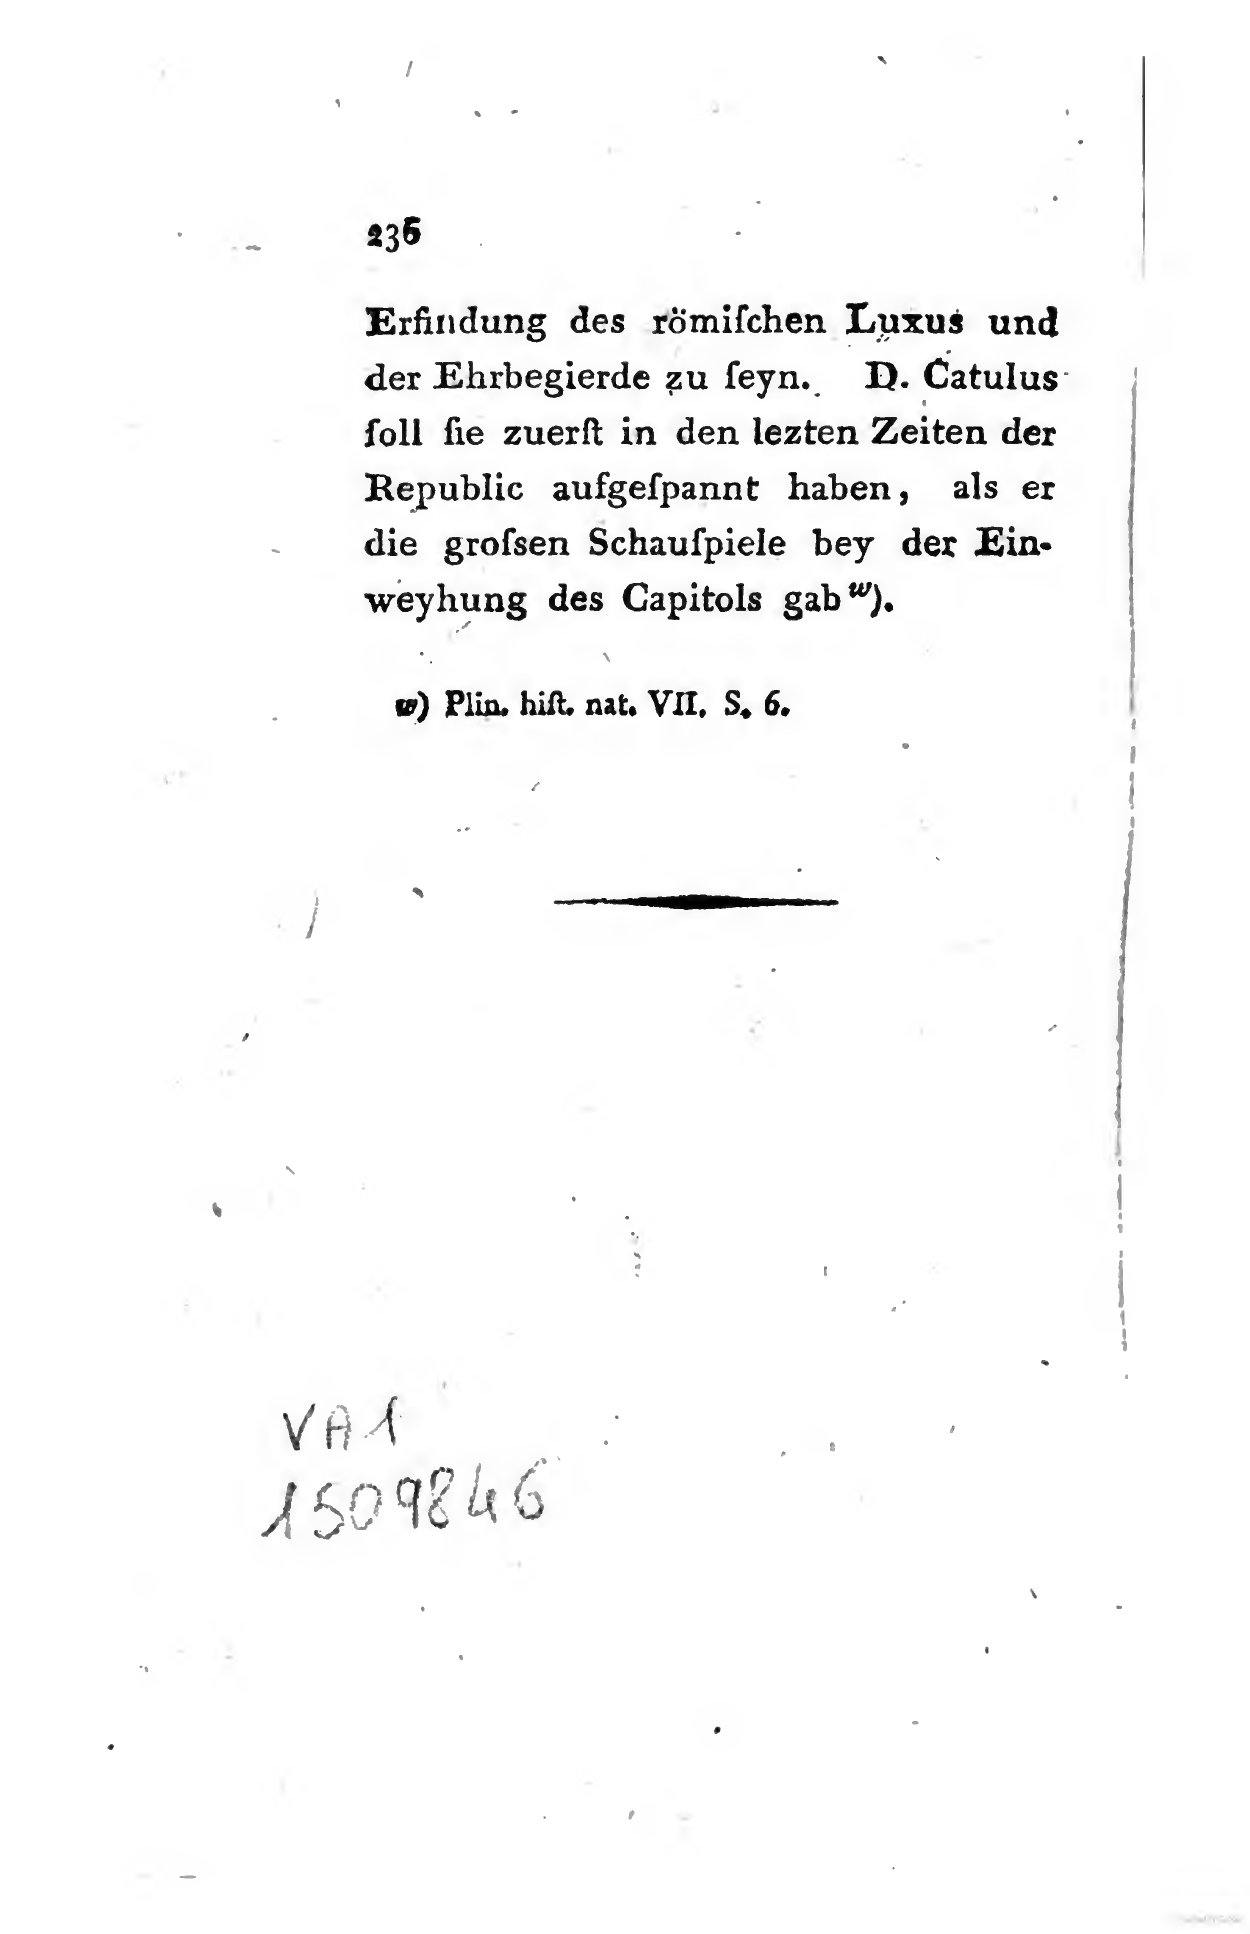 236
Erfindung des römiſchen Luxus und
der Ehrbegierde zu ſeyn. D. Catulus
ſoll ſie zuerſt in den lezten Zeiten der
Republic aufgeſpannt haben, als er
die groſsen Schauſpiele bey der Ein-
weyhung des Capitols gab w).
w) Plin. hiſt. nat. VII. S. 6.
VA1
1509846